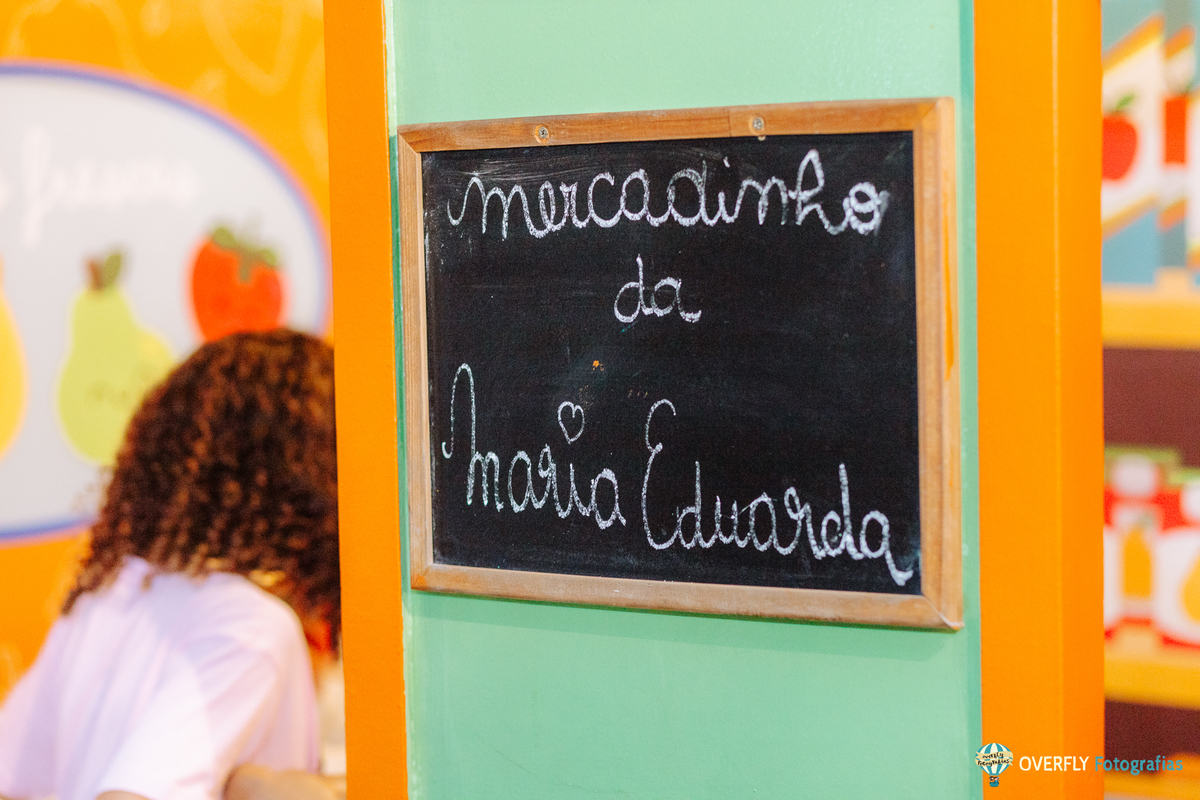 mercadinho
da
Maria Eduarda
OVERFLY Fotografias